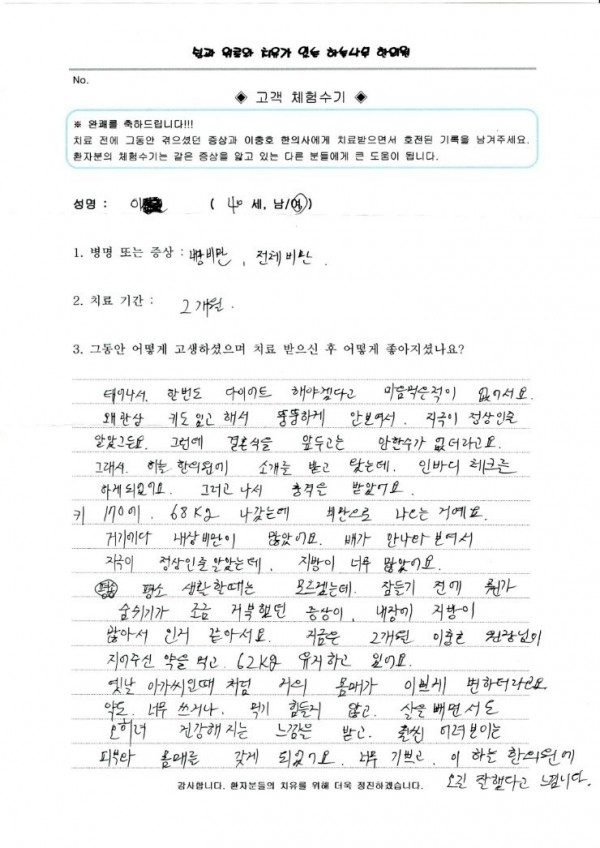 No.
◈ 고객 체험수기 ◈
※ 완쾌를 축하드립니다!!!
치료 전에 그동안 겪으셨던 증상과 이중호 한의사에게 치료받으면서 호전된 기록을 남겨주세요.
환자분의 체험수기는 같은 증상을 앓고 있는 다른 분들에게 큰 도움이 됩니다.
성명 : 이 ( 40 세, 남/여)
1. 병명 또는 증상 : 내장비만, 전체비만.
2. 치료 기간 : 2개월.
3. 그동안 어떻게 고생하셨으며 치료 받으신 후 어떻게 좋아지셨나요?
태어나서. 한번도 다이어트 해야겠다고 마음먹은적이 없어서요.
왜관상 키도 있고 해서 뚱뚱하게 안보여서. 지극이 정상인줄
알았그든요. 그런데 결혼식을 앞두고는 안할수가 없더라고요.
그래서. 하늘 한의원에 소개를 받고 왔는데. 인바디 체크를
하게되었어요. 그러고 나서 충격을 받았어요.
키 170에. 68Kg 나갔는데 비만으로 나오는 거예요.
거기에다 내장비만이 많았어요. 배가 안나와 보여서
지극이 정상인줄알았는데, 지방이 너무 많았어요.
평소 생활할때는 모르겠는데. 잠들기 전에 뭔가
숨쉬기가 조금 거북했던 증상이, 내장에 지방이
많아서 인거 같아서요. 지금은 2개월 이중호 원장님이
지어주신 약을 먹고. 62kg 유지하고 있어요.
옛날 아가씨일때 처럼 저의 몸매가 이쁘게 변하더라고요.
약도. 너무 쓰거나. 먹기 힘들지 않고. 살을 빼면서도
오히려 건강해 지는 느낌을 받고. 훨씬 어려보이는
피부와 몸매를 갖게 되었어요. 너무 기쁘고. 이 하늘 한의원에
오길 잘했다고 느낍니다.
감사합니다. 환자분들의 치유를 위해 더욱 정진하겠습니다.